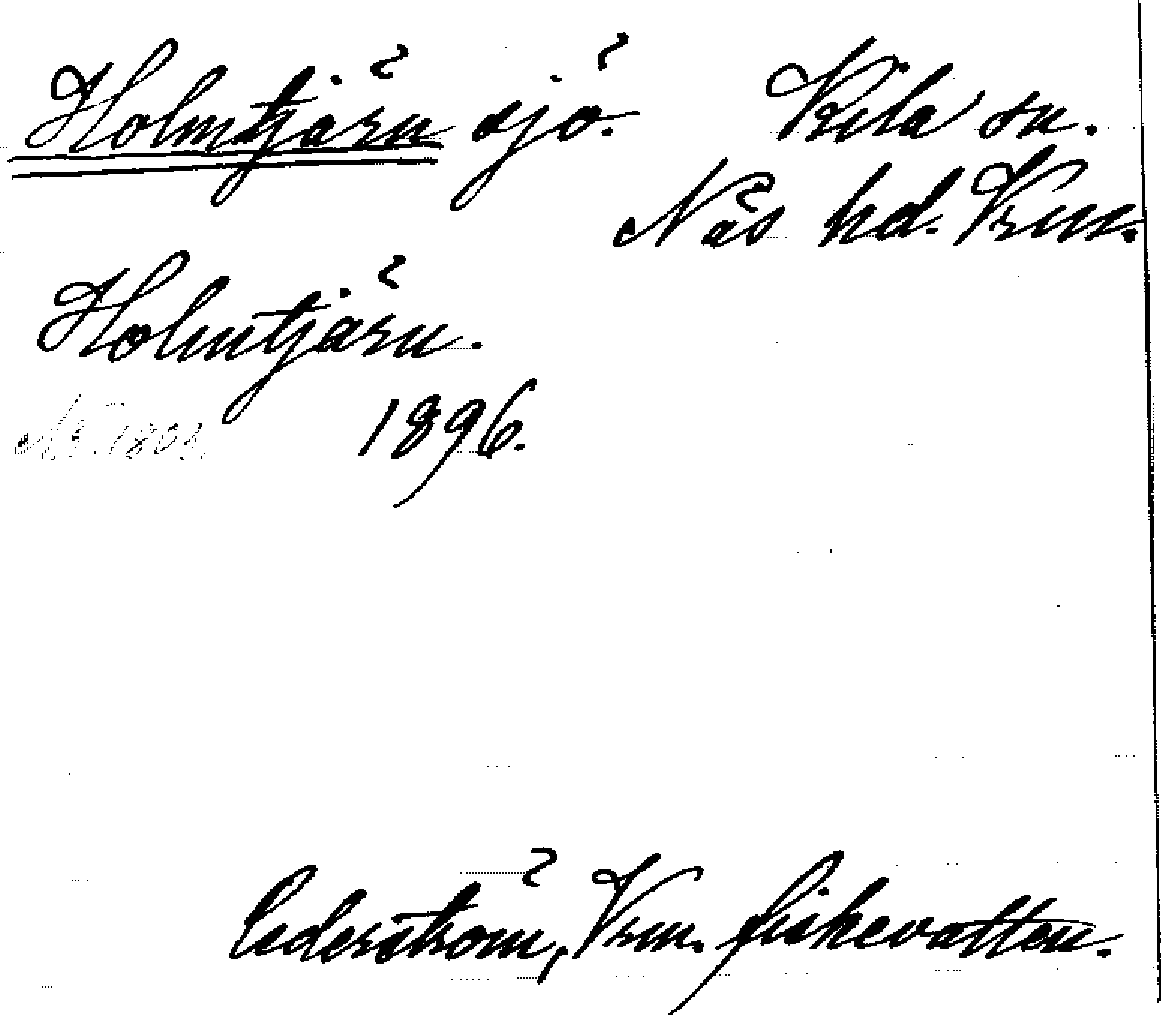 Holmtjärn sjö. Kila sn.
Näs hd. Vrm.
Holmtjärn.
1896.
Cederström, Vrm. fiskevatten.